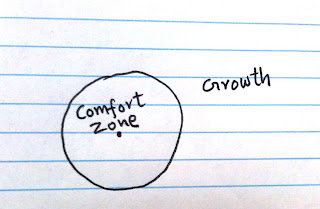 Comfort
Zone
Growth